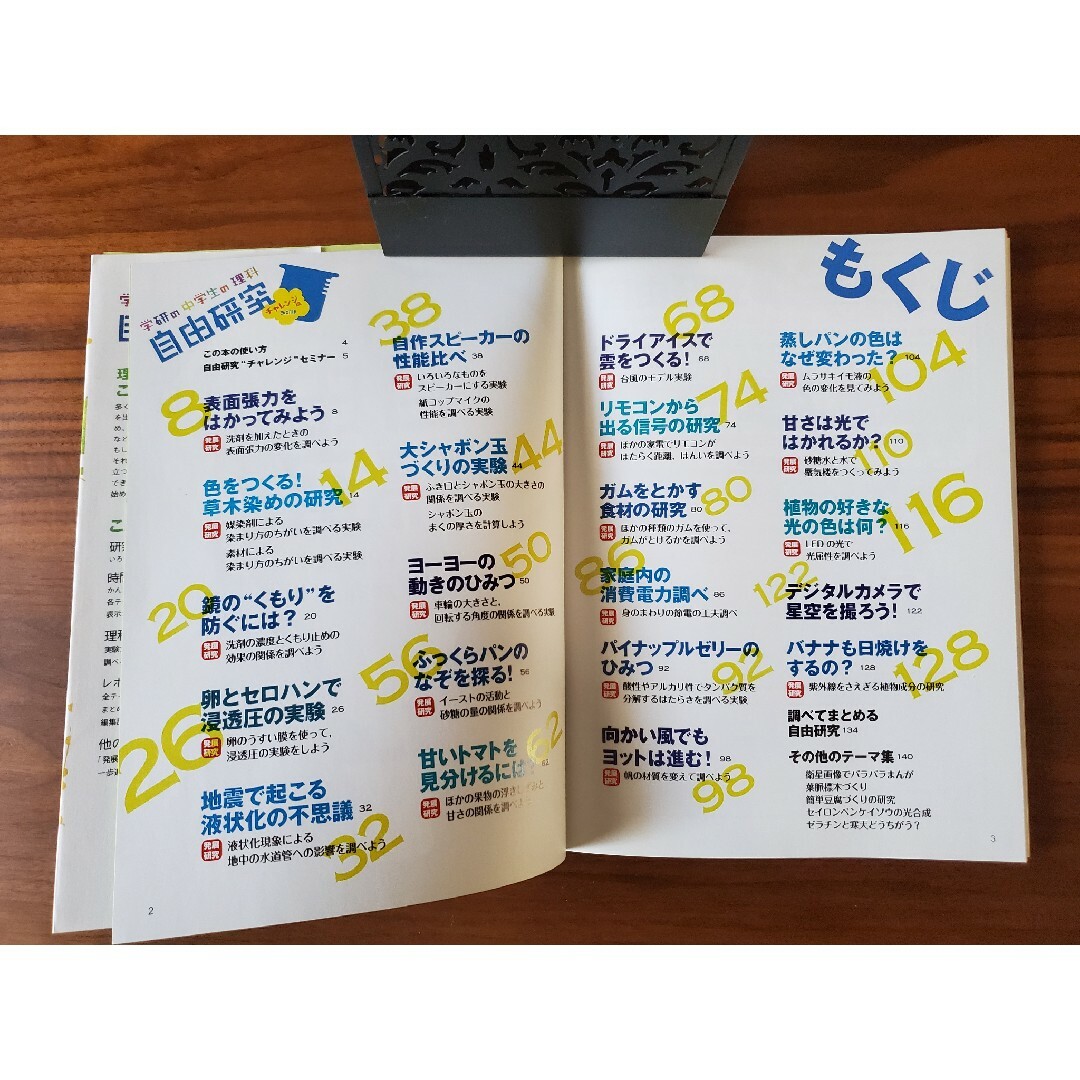 学研の中学生の理科
自由研究
チャレンジ編
この本の使い方 4
自由研究“チャレンジ”セミナー 5
8
表面張力を
はかってみよう 8
発展研究
洗剤を加えたときの
表面張力の変化を調べよう
14
色をつくる！
草木染めの研究 14
発展研究
媒染剤による
染まり方のちがいを調べる実験
素材による
染まり方のちがいを調べる実験
20
鏡の“くもり”を
防ぐには？ 20
発展研究
洗剤の濃度とくもり止めの
効果の関係を調べよう
26
卵とセロハンで
浸透圧の実験 26
発展研究
卵のうすい膜を使って、
浸透圧の実験をしよう
地震で起こる
液状化の不思議 32
32
発展研究
液状化現象による
地中の水道管への影響を調べよう
2
38
自作スピーカーの
性能比べ 38
発展研究
いろいろなものを
スピーカーにする実験
紙コップマイクの
性能を調べる実験
44
大シャボン玉
づくりの実験 44
発展研究
ふき口とシャボン玉の大きさの
関係を調べる実験
シャボン玉の
まくの厚さを計算しよう
50
ヨーヨーの
動きのひみつ 50
発展研究
車輪の大きさと、
回転する角度の関係を調べる実験
56
ふっくらパンの
なぞを探る！ 56
発展研究
イーストの活動と
砂糖の量の関係を調べよう
62
甘いトマトを
見分けるには？ 62
発展研究
ほかの果物の浮きしずみと
甘さの関係を調べよう
もくじ
68
ドライアイスで
雲をつくる！ 68
発展研究
台風のモデル実験
74
リモコンから
出る信号の研究 74
発展研究
ほかの家電でリモコンが
はたらく距離、はんいを調べよう
80
ガムをとかす
食材の研究 80
発展研究
ほかの種類のガムを使って、
ガムがとけるかを調べよう
86
家庭内の
消費電力調べ 86
発展研究
身のまわりの節電の工夫調べ
92
パイナップルゼリーの
ひみつ 92
発展研究
酸性やアルカリ性でタンパク質を
分解するはたらきを調べる実験
向かい風でも
ヨットは進む！ 98
98
発展研究
帆の材質を変えて調べよう
104
蒸しパンの色は
なぜ変わった？ 104
発展研究
ムラサキイモ液の
色の変化を見てみよう
110
甘さは光で
はかれるか？ 110
発展研究
砂糖水と水で
蜃気楼をつくってみよう
116
植物の好きな
光の色は何？ 116
発展研究
LEDの光で
光屈性を調べよう
122
デジタルカメラで
星空を撮ろう！ 122
128
バナナも日焼けを
するの？ 128
発展研究
紫外線をさえぎる植物成分の研究
調べてまとめる
自由研究 134
その他のテーマ集 140
衛星画像でパラパラまんが
葉脈標本づくり
簡単豆腐づくりの研究
セイロンベンケイソウの光合成
ゼラチンと寒天どうちがう？
3